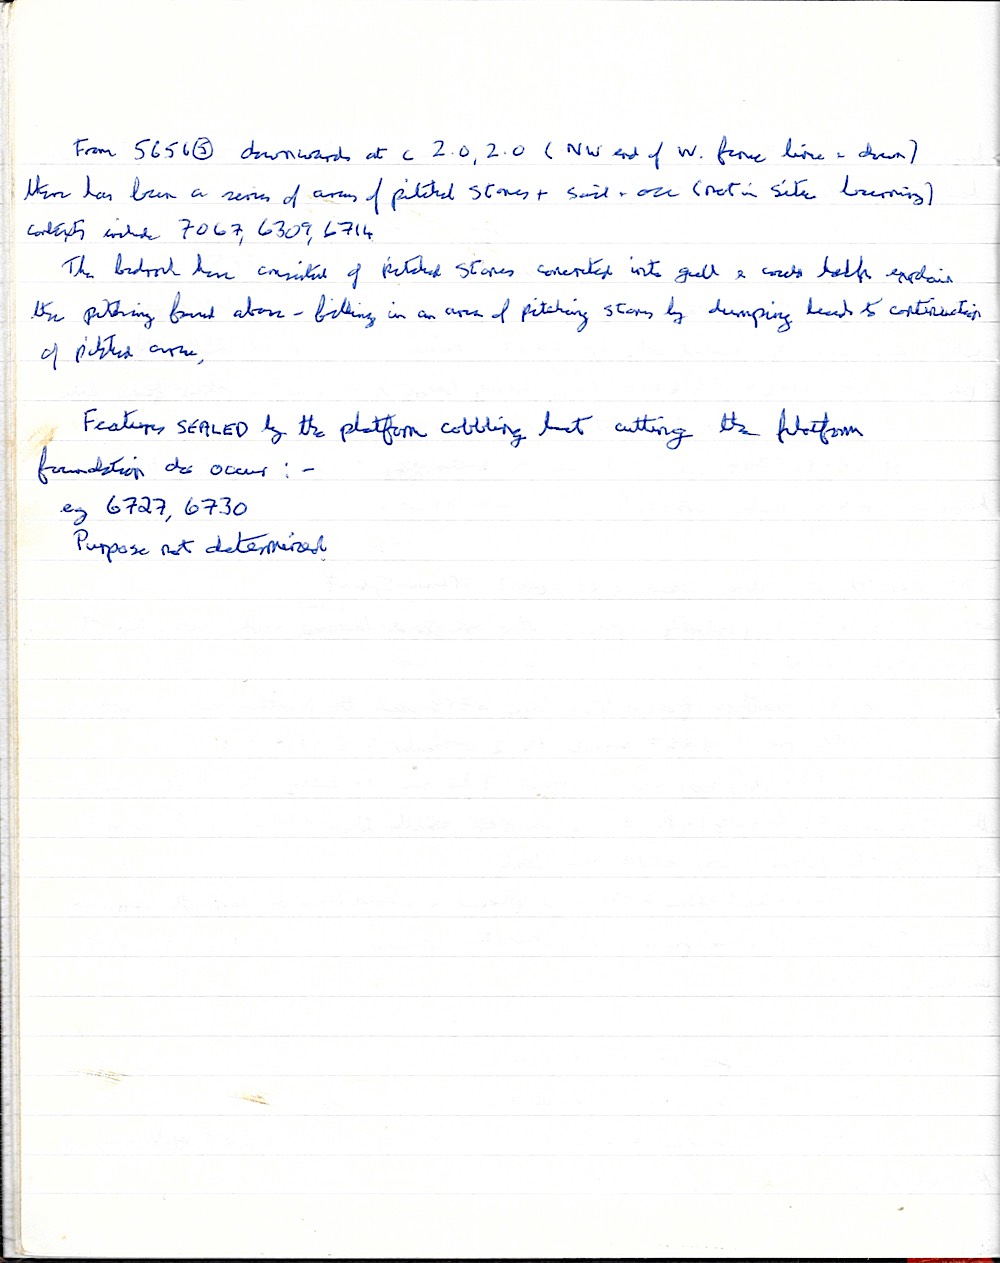 From 5656 ⑤ downwards at c 2.0, 2.0 ( NW end of W. fence line = down)
there has been a series of areas of pitched stones + soil - (not in situ burning)
contexts include 7067, 6309, 6714
The bedrock here consisted of pitched stones concreted into & could help explain
the pitching found above - filling in an area of pitching stones by dumping leads to continuation
of pitched area,
Features SEALED by the platform cobbling but cutting the platform
foundation do occur : -
eg 6727, 6730
Purpose not determined.